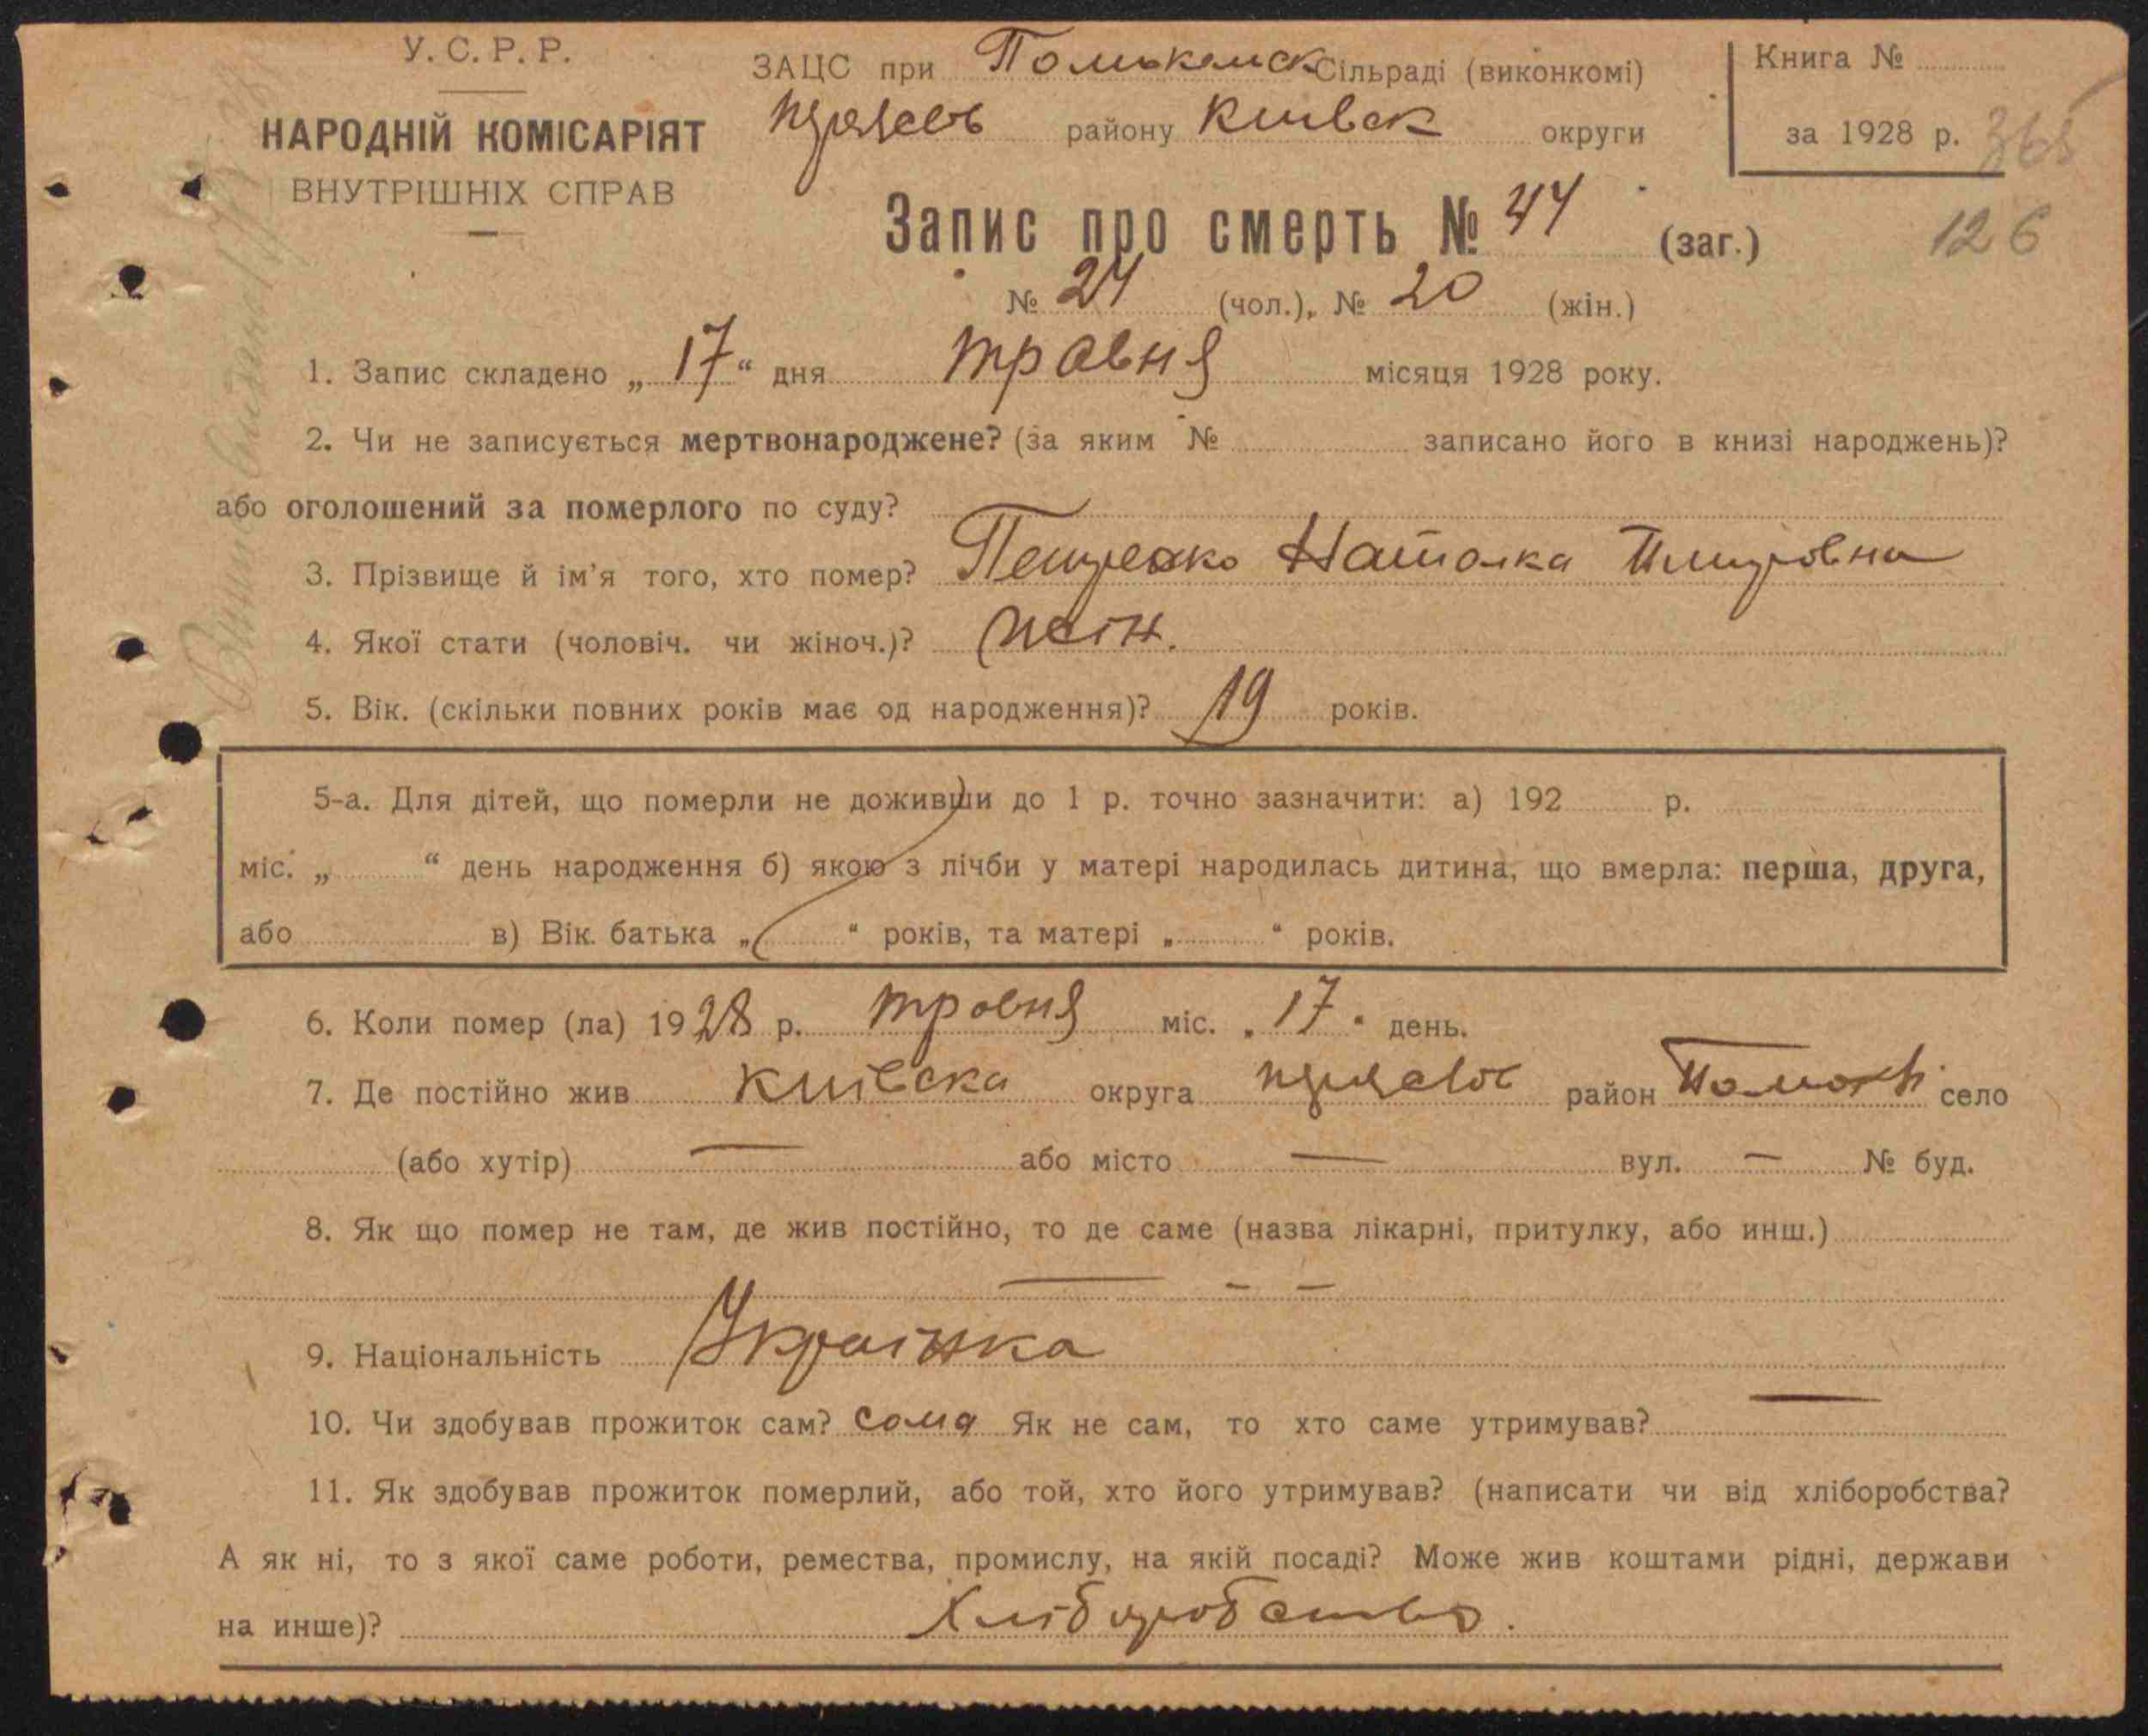 У. С. Р. Р.
НАРОДНІЙ КОМІСАРІЯТ
ВНУТРІШНІХ СПРАВ
ЗАЦС при Сільраді (виконкомі)
району Київск округи
Книга №
за 1928 р. 365
126
Запис про смерть № 44 (заг.)
№ 24 (чол.), № 20 (жін.)
1. Запис складено „ 17 “ дня травня місяця 1928 року.
2. Чи не записується мертвонароджене? (за яким № записано його в книзі народжень)?
або оголошений за померлого по суду?
3. Прізвище й ім'я того, хто помер? Наталка
4. Якої стати (чоловіч. чи жіноч.)? жін.
5. Вік. (скільки повних років має од народження)? 19 років.
5-а. Для дітей, що померли не доживши до 1 р. точно зазначити: а) 192 р.
міс. „ “ день народження б) якою з лічби у матері народилась дитина, що вмерла: перша, друга,
або в) Вік батька „ “ років, та матері „ “ років.
6. Коли помер (ла) 1928 р. травня міс. „ 17 “ день.
7. Де постійно жив Київска округа район село
(або хутір) — або місто — вул. — № буд.
8. Як що помер не там, де жив постійно, то де саме (назва лікарні, притулку, або инш.)
— - -
9. Національність Українка
10. Чи здобував прожиток сам? сама Як не сам, то хто саме утримував? —
11. Як здобував прожиток померлий, або той, хто його утримував? (написати чи від хліборобства?
А як ні, то з якої саме роботи, ремества, промислу, на якій посаді? Може жив коштами рідні, держави
на инше)? Хліборобство.